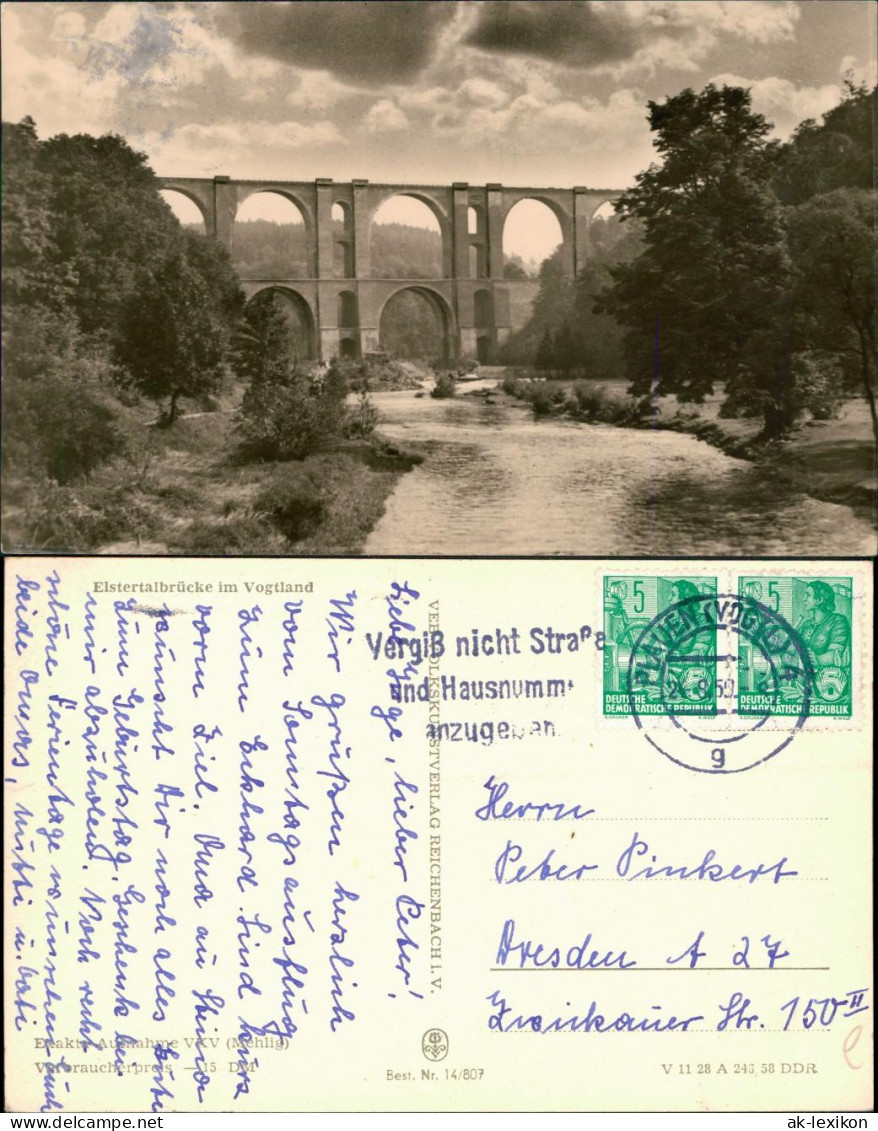 Elstertalbrücke im Vogtland
Liebe Inge, lieber Peter!
Wir grüßen herzlich
vom Samstagsausflug
zum Eckhard. Sind kurz
vorm Ziel. Oma au
wünscht Dir noch alles Gute
zum Geburtstag. Geschenk bei
mir abzuholen. Noch recht
schöne Ferientage wünschen Euch
beide Omas, Mutti u. Vati
VEB VOLKSKUNSTVERLAG REICHENBACH i. V.
Vergiß nicht Straße
und Hausnumm
anzugeben
5
DEUTSCHE
DEMOKRATISCHE REPUBLIK
5
DEUTSCHE
DEMOKRATISCHE REPUBLIK
PLAUEN (VOGTL)
g
Herrn
Peter Pinkert
Dresden A 27
Zwickauer Str. 150 II
Exakte-Aufnahme VKV (Mehlig)
Verbraucherpreis —15 DM
Best. Nr. 14/807
V 11 28 A 243 58 DDR
ak-ansichtskarten.de
ak-lexikon